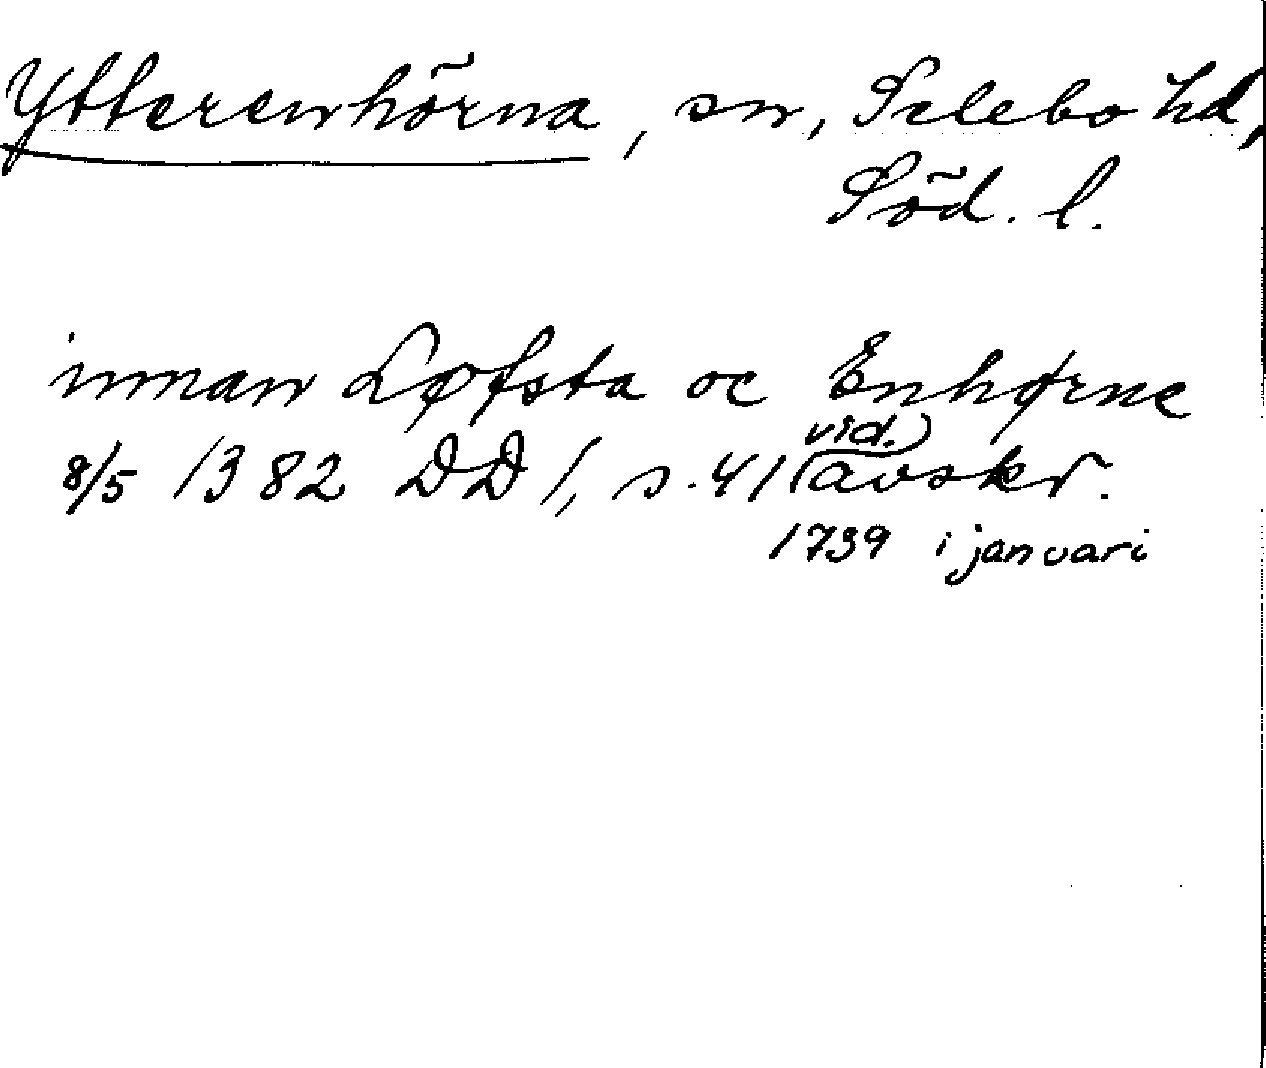 Ytterenhörna, sn, Selebo hd,
Söd. l.
innan Løfsta oc Enhørne
8/5 1382 DD 1, s. 41 (vid. avskr.
1739 i januari